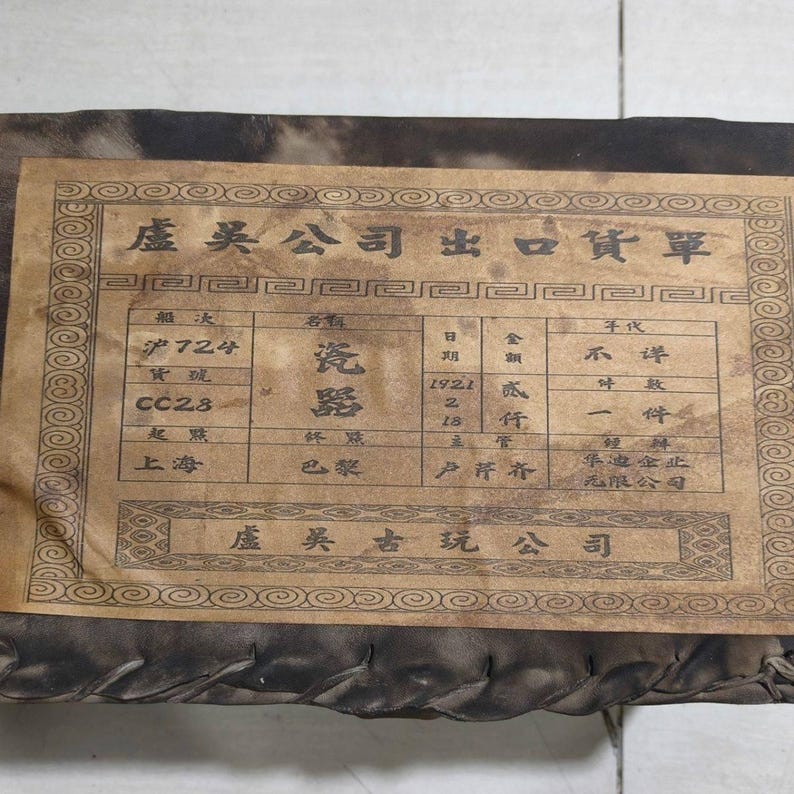 盧吴公司出口貨單
船次 名稱 日期 金額 年代
沪724 瓷器 1921 2 18 贰仟 不详
貨號 件數
CC28 一件
起點 終點 主管 經辦
上海 巴黎 卢芹齐 华迪企业无限公司
盧吴古玩公司